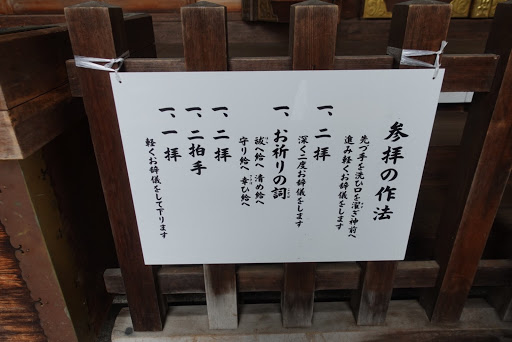 参拝の作法
先づ手を洗ひ口を濯ぎ神前へ
進み軽くお辞儀をします
一、二拝
深く二度お辞儀をします
一、お祈りの詞
祓へ給へ 清め給へ
守り給へ 幸ひ給へ
一、二拝
一、二拍手
一、一拝
軽く、お辞儀をして下ります